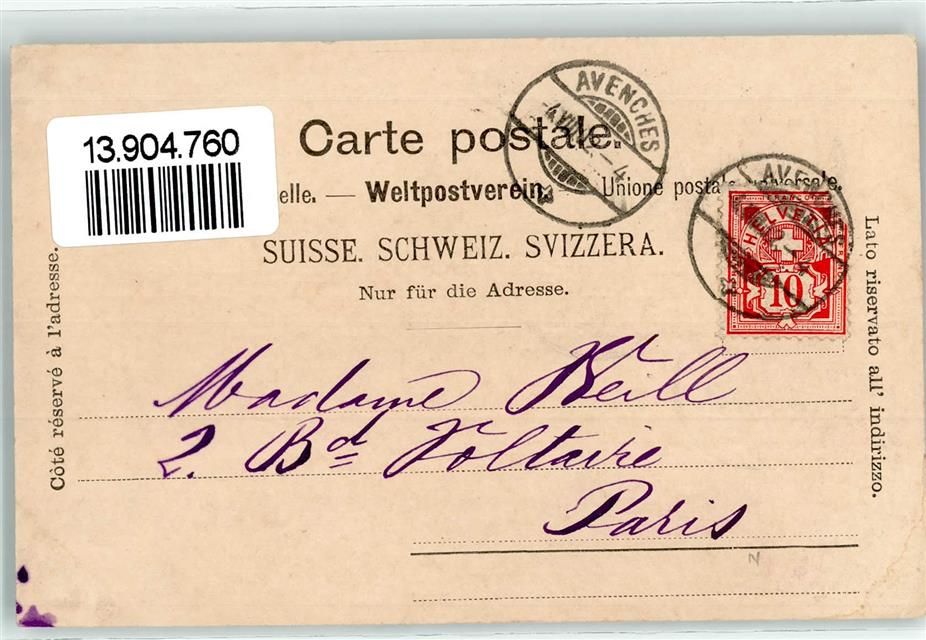 13.904.760
Carte postale.
elle. — Weltpostverein. — Unione postale universale.
SUISSE. SCHWEIZ. SVIZZERA.
Nur für die Adresse.
Côté réservé à l'adresse.
Lato riservato all' indirizzo.
AVENCHES
AVENCHES
FRANCO
HELVETIA
10
Madame Weill
2. Bd Voltaire
Paris
N